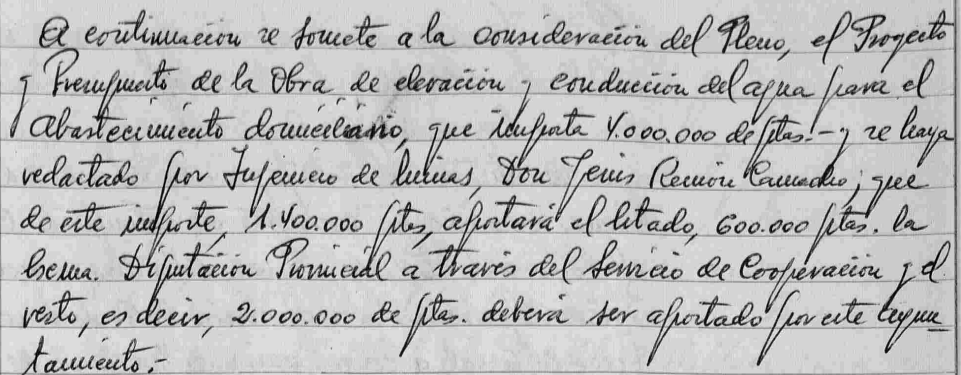 A continuación se somete a la consideración del Pleno, el Proyecto
y Presupuesto de la Obra de elevación y conducción del agua para el
Abastecimiento domiciliario, que importa 4.000.000 de ptas.- y se haya
redactado por Ingeniero de minas, Don Jesús Camacho; que
de este importe, 1.400.000 ptas, aportará el Estado, 600.000 ptas. la
Excma. Diputación Provincial a través del Servicio de Cooperación y el
resto, es decir, 2.000.000 de ptas. deberá ser aportado por este Ayun
tamiento.-